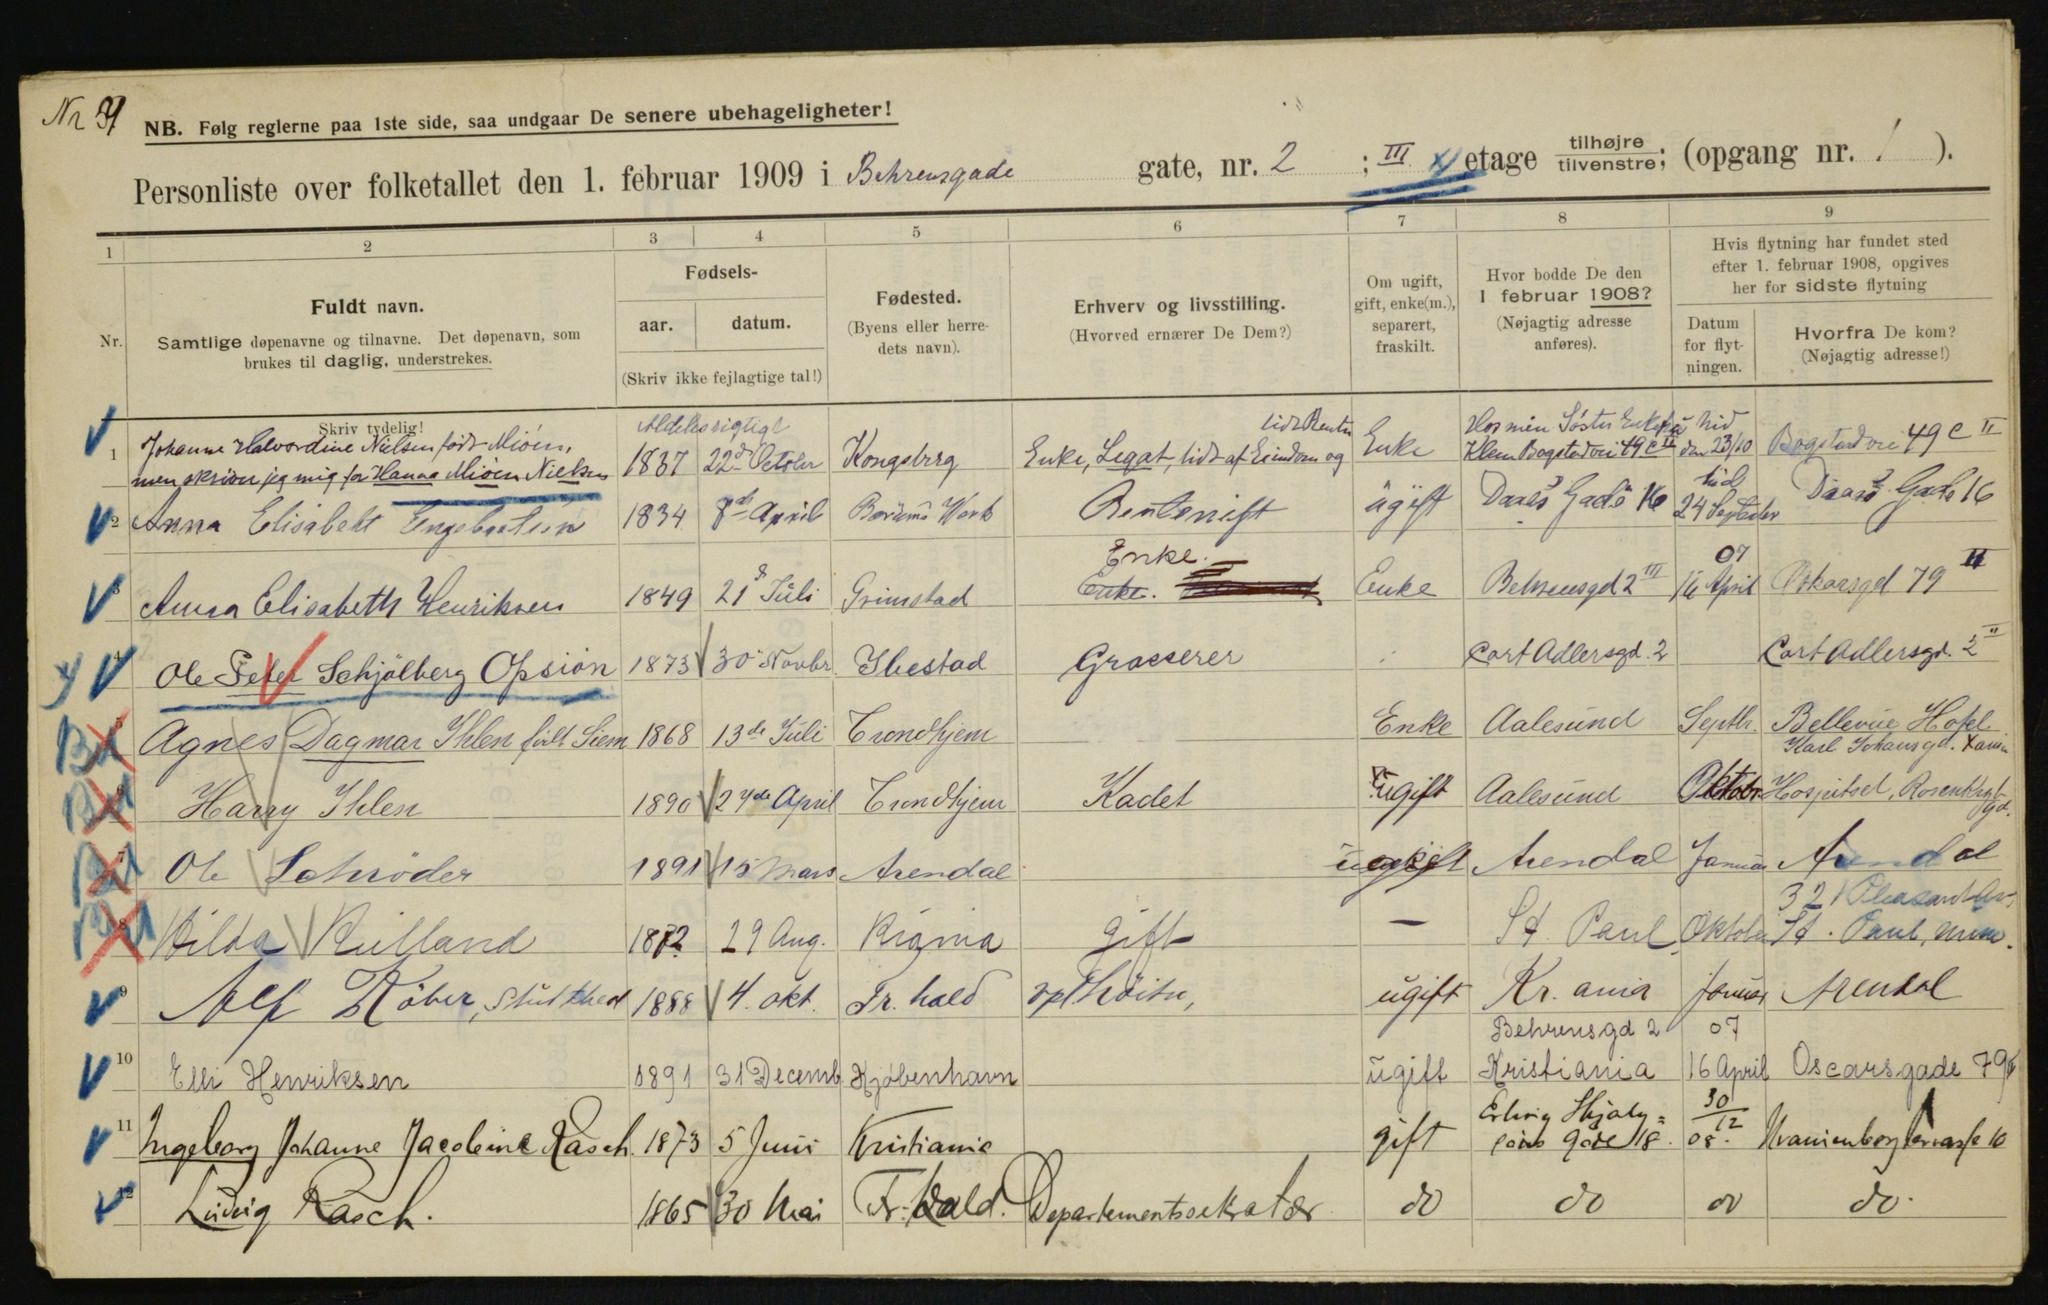 Nr 31
NB. Følg reglerne paa 1ste side, saa undgaar De senere ubehageligheter!
Personliste over folketallet den 1. februar 1909 i Behrensgade gate, nr. 2 ; III x) etage tilhøjre/tilvenstre; (opgang nr. 1 ).
1 2 3 4 5 6 7 8 9
Nr.
Fuldt navn.
Samtlige døpenavne og tilnavne. Det døpenavn, som
brukes til daglig, understrekes.
Skriv tydelig!
Fødsels-
aar. datum.
(Skriv ikke fejlagtige tal!)
Fødested.
(Byens eller herre-
dets navn).
Erhverv og livsstilling.
(Hvorved ernærer De Dem?)
Om ugift,
gift, enke(m.),
separert,
fraskilt.
Hvor bodde De den
1 februar 1908?
(Nøjagtig adresse
anføres).
Hvis flytning har fundet sted
efter 1. februar 1908, opgives
her for sidste flytning
Datum
for flyt-
ningen.
Hvorfra De kom?
(Nøjagtig adresse!)
Aldeles rigtigt lidt Renter Hos min Søster Enkefru hid
1 Johanne Halvordine Nielsen født Miöen,
men skriver jeg mig for Hanna Miöen Nielsen 1837 22de Octobr Kongsberg Enke, Legat, lidt af Eiendom og Enke Klem Bogstadvei 49 c II den 23/10 Bogstadvei 49 c II
hid
2 Anna Elisabeth Engebretsen 1834 8de April Bærums Werk Rentenist ugift Daaes Gade 16 24 September Daaes Gade 16
Enke. 07
3 Anna Elisabeth Henriksen 1849 21de Juli Grimstad Enke. Enke Behrensgd 2 III 16 April Oskarsgd 79 II
4 Ole Peter Schjølberg Opsiøn 1873 30 Novbr Ibestad Grosserer Cort Adlersgd. 2 Cort Adlersgd. 2 II
5 Agnes Dagmar Ihlen født Siem 1868 13de Juli Trondhjem Enke Aalesund Septbr. Bellevue Hotel
Karl Johansgd.
6 Harry Ihlen 1890 24de April Trondhjem Kadet ugift Aalesund Oktobr Hospitset, Rosenkrtz
gd.
7 Ole Schröder 1891 15 Mars Arendal ugift Arendal Januar Arendal
321 Pleasant Av.
8 Hilda Rulland 1872 29 Aug. Kr.ania gift — St. Paul Oktober St. Paul, Minn.
9 Alf Röber, 1888 4. okt. Fr. hald ugift Kr. ania Januar Arendal
Behrensgd 2 07
10 Elli Henriksen 1891 31 Decemb Kjøbenhavn ugift Kristiania 16 April Oscarsgade 79 II
11 Ingeborg Johanne Jacobine Rasch. 1873 5 Juni Kristiania gift Erling Skjalg-
søns gade 18. 30/12 08. Uranienborg terrasse 10
12 Ludvig Rasch. 1865 30 Mai Fr. Hald. Departementssekretær do do do do.